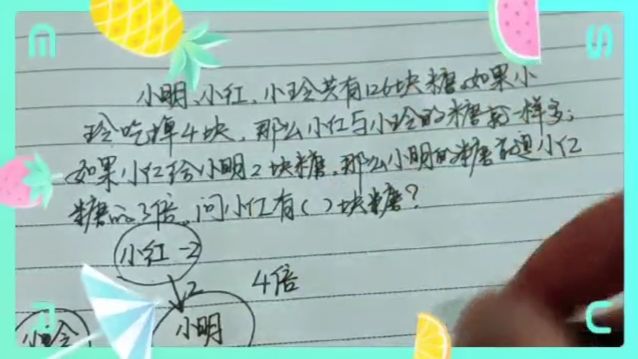 小明、小红、小玲共有126块糖。如果小
玲吃掉4块，那么小红与小玲的糖就一样多；
如果小红给小明2块糖，那么小明的糖就是小红
糖的3倍，问小红有（ ）块糖？
小红 -2
2
4倍
小明